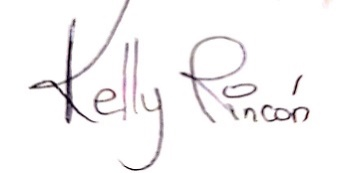 Kelly Rincón